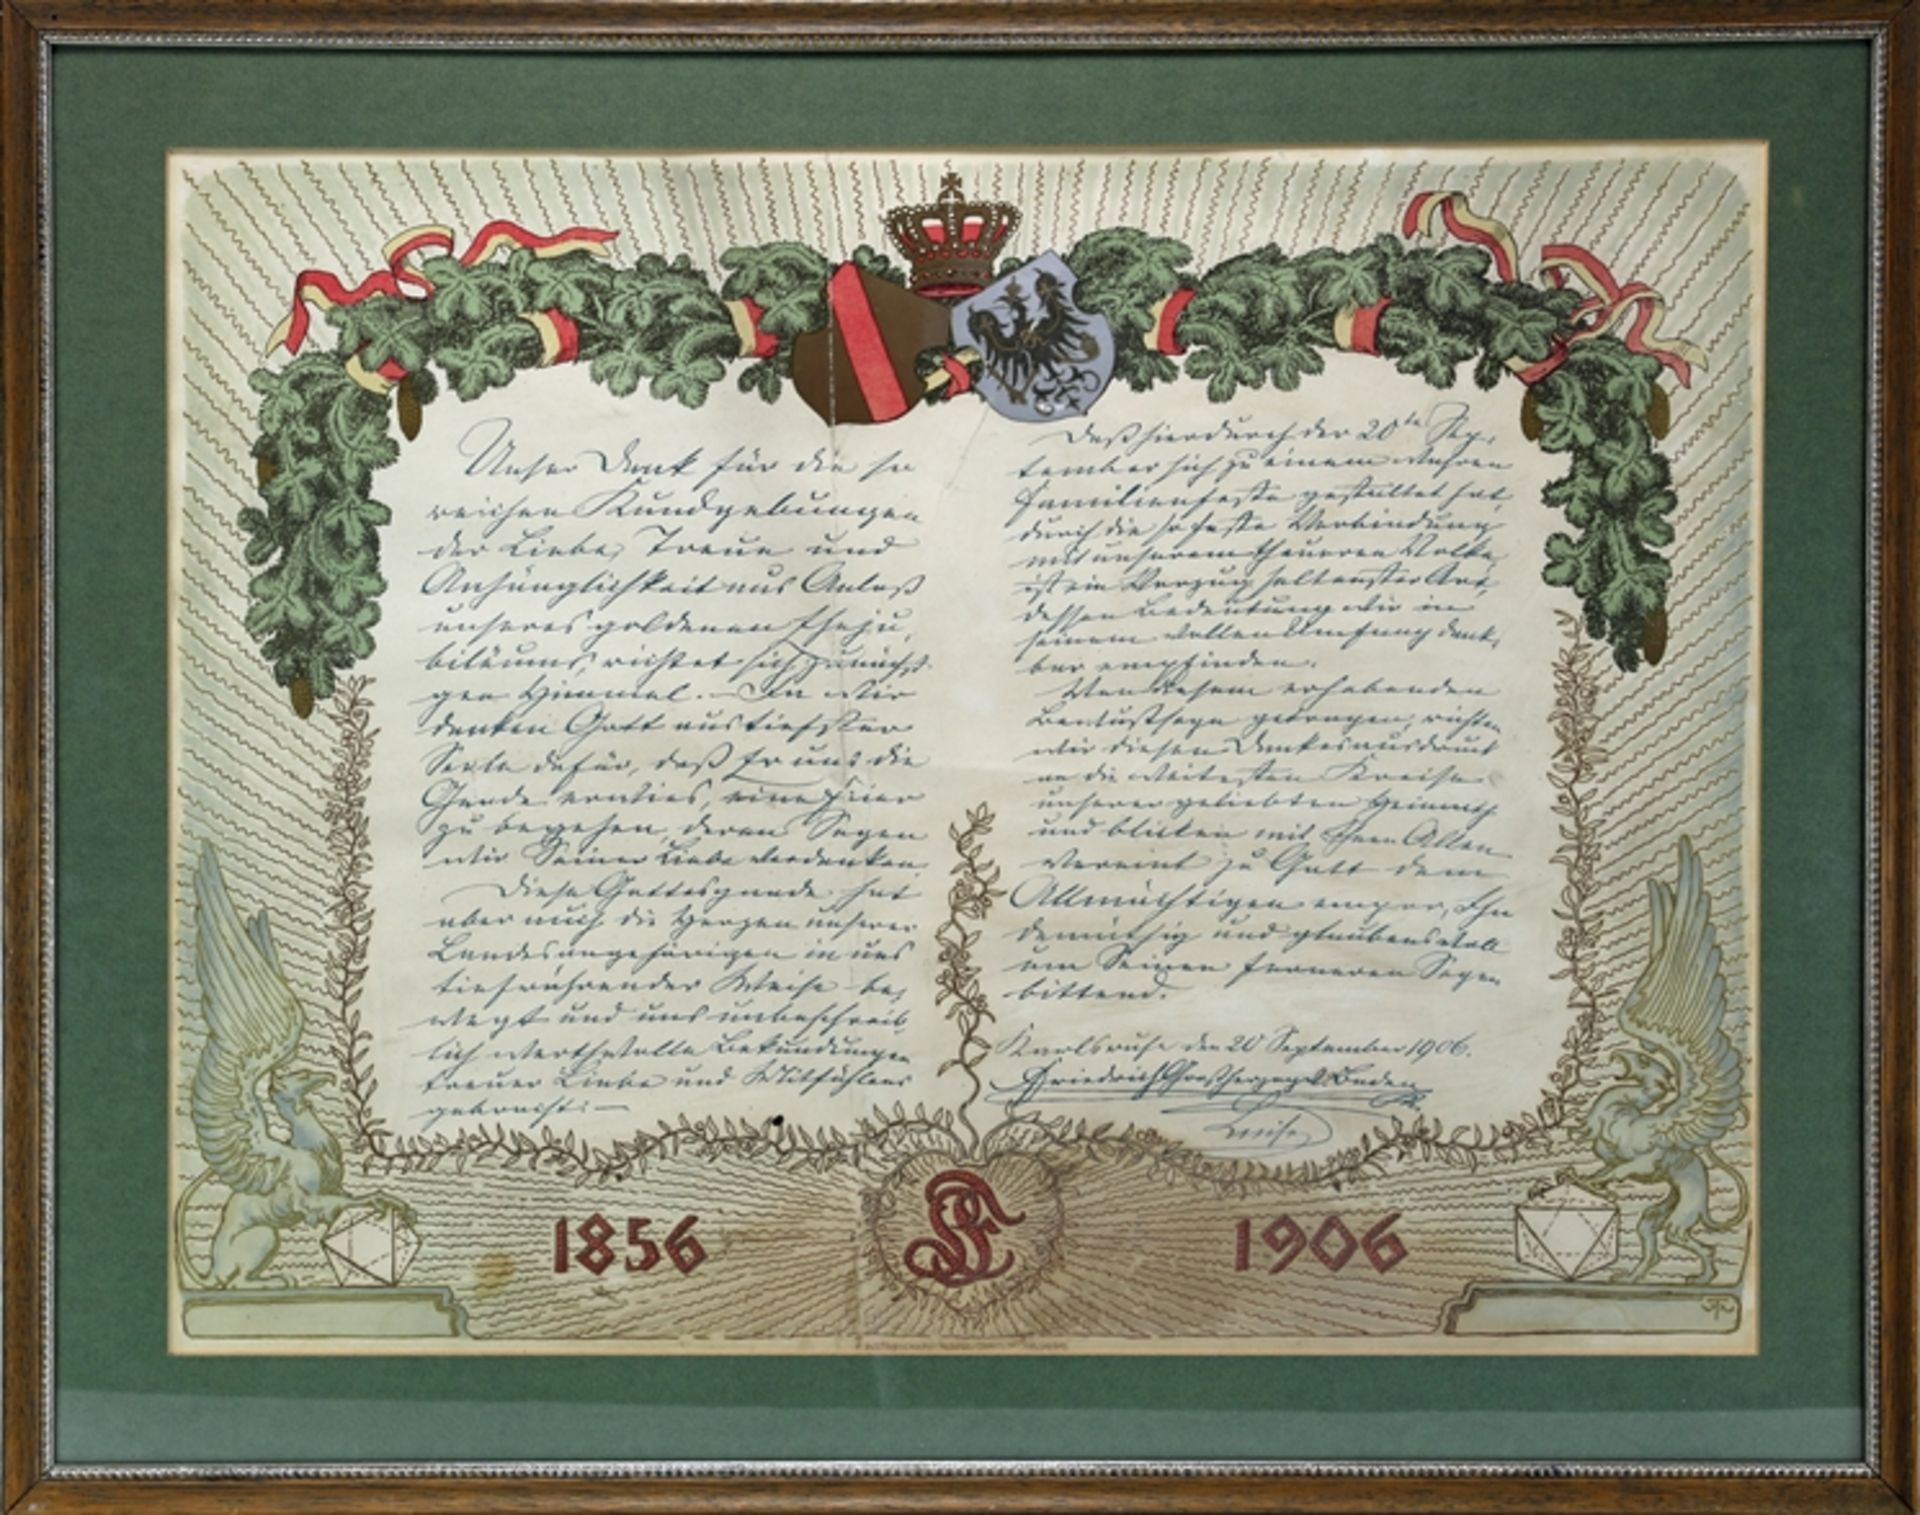 Unser Dank für die so
reichen Kundgebungen
der Liebe, Treue und
Anhänglichkeit aus Anlaß
unseres goldenen Eheju-
biläums, richtet sich zunächst
gen Himmel. — Denn Wir
danken Gott aus tiefster
Seele dafür, daß Er uns die
Gnade erwies, eine Feier
zu begehen, deren Segen
Wir Seiner Liebe verdanken.
Diese Gottesgnade hat
aber auch die Herzen unserer
Landesangehörigen in uns
tiefrührender Weise be-
wegt und uns unbeschreib-
lich werthvolle Bekundungen
treuer Liebe und Mitfühlens
gebracht: —
Daß hierdurch der 20te Sep-
tember sich zu einem wahren
Familienfeste gestaltet hat,
durch die so feste Verbindung
mit unserem theueren Volke,
ist ein Vorzug seltenster Art,
dessen Bedeutung Wir in
seinem vollen Umfang dank-
bar empfinden.
Von diesem erhebenden
Bewußtseyn getragen, richten
Wir diesen Dankesausdruck
an die weitesten Kreise
unserer geliebten Heimath
und blicken mit Ihnen Allen
vereint zu Gott dem
Allmächtigen empor, Ihn
demüthig und glaubensvoll
um Seinen ferneren Segen
bittend.
Karlsruhe den 20 September 1906.
Friedrich Großherzog v. Baden
Luise
1856
1906